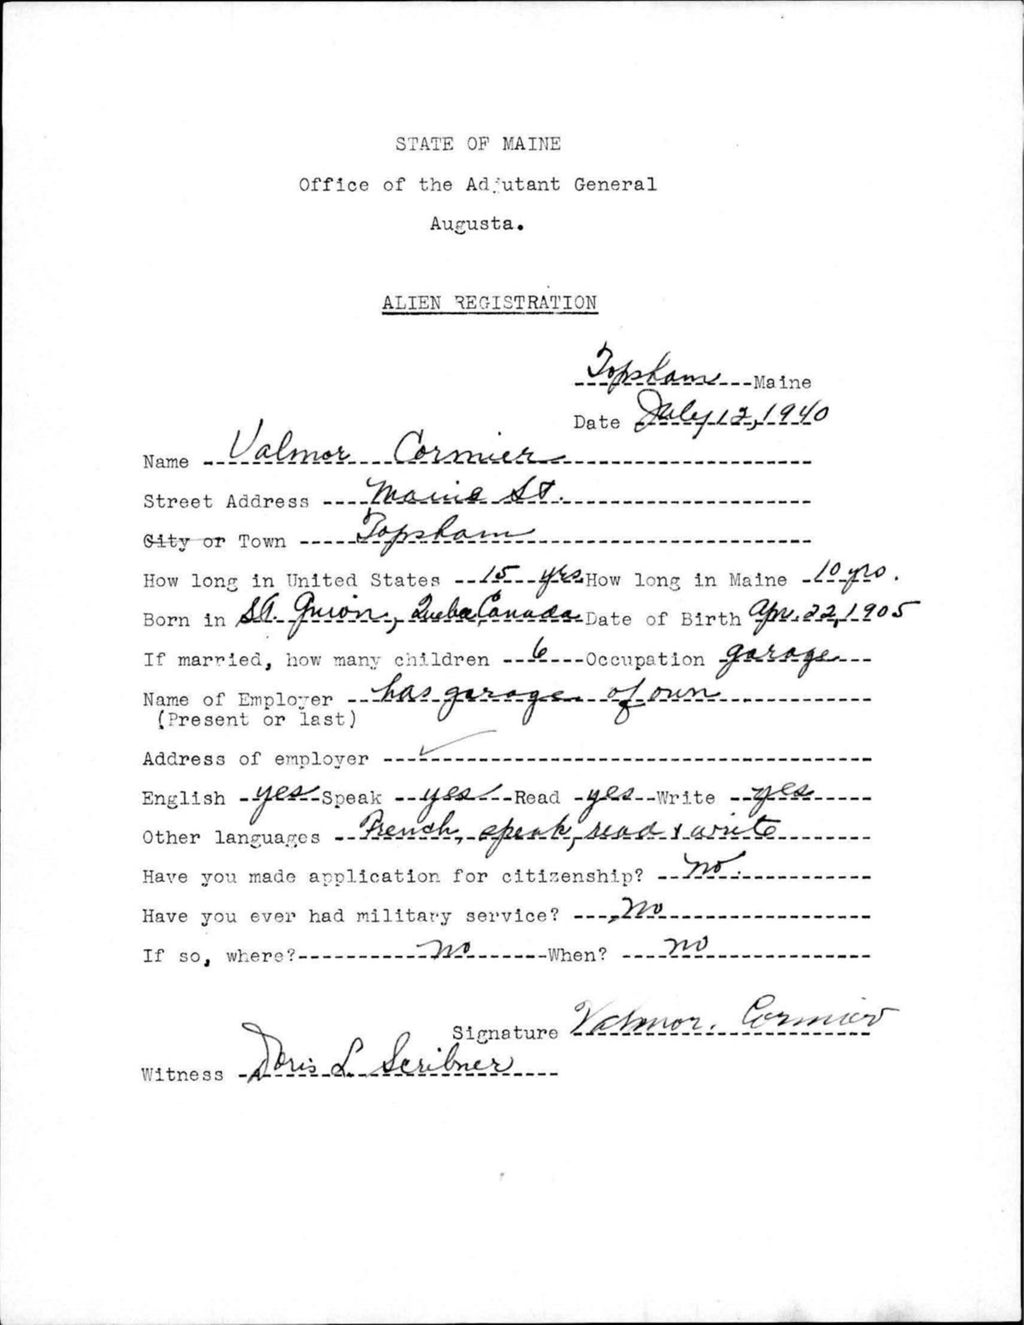 STATE OF MAINE
Office of the Adjutant General
Augusta.
ALIEN REGISTRATION
Topsham Maine
Date July 12, 1940
Name Valmor Cormier
Street Address Maine St.
City or Town Topsham
How long in United States 15 yrs How long in Maine 10 yrs.
Born in St. Canada Date of Birth Apr. 22, 1905
If married, how many children 6 Occupation garage
Name of Employer has garage of own
(Present or last)
Address of employer ✓
English yes Speak yes Read yes Write yes
Other languages French, speak, read & write
Have you made application for citizenship? No.
Have you ever had military service? No
If so, where? no When? no
Signature Valmor. Cormier
Witness Doris L. Scribner